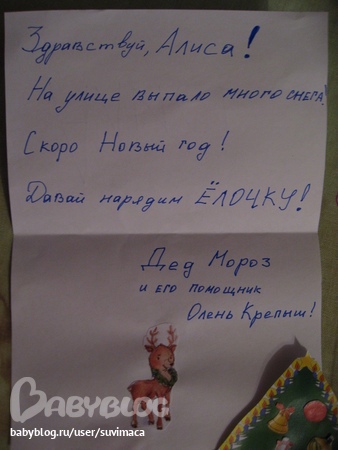 Здравствуй, Алиса!
На улице выпало много снега!
Скоро Новый год!
Давай нарядим ЁЛОЧКУ!
Дед Мороз
и его помощник
Олень Крепыш!
BABYBLOG
babyblog.ru/user/suvimaca